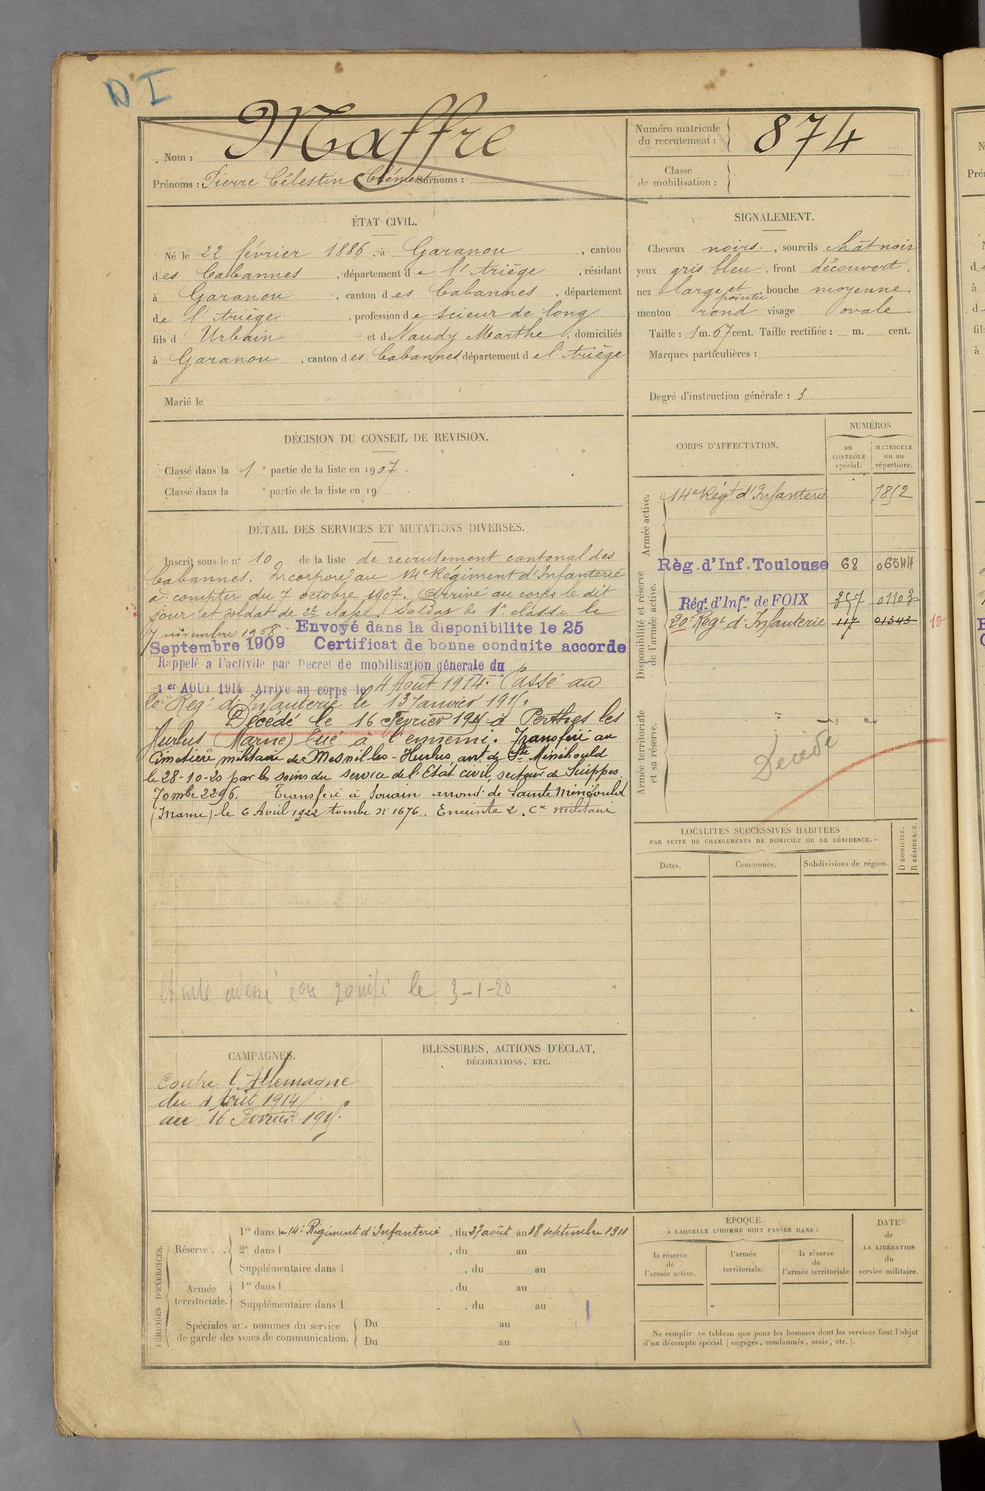 D I
Nom : Maffre
Prénoms : Pierre Célestin Clément Surnoms :
Numéro matricule du recrutement : 874
Classe de mobilisation :
ÉTAT CIVIL.
Né le 22 février 1886, à Garanou, canton
des Cabannes, département de l'Ariège, résidant
à Garanou, canton des Cabannes, département
de l'Ariège, profession de scieur de long
fils d Urbain et d Naudy Marthe, domiciliés
à Garanou, canton des Cabannes département de l'Ariège
Marié le
SIGNALEMENT.
Cheveux noirs, sourcils chât noir
yeux gris bleu, front découvert,
nez large et pointu, bouche moyenne,
menton rond visage ovale
Taille : 1 m. 67 cent. Taille rectifiée : m. cent.
Marques particulières :
Degré d'instruction générale : 3
DÉCISION DU CONSEIL DE REVISION.
Classé dans la 1e partie de la liste en 1907.
Classé dans la e partie de la liste en 19
DÉTAIL DES SERVICES ET MUTATIONS DIVERSES.
Inscrit sous le n° 10 de la liste de recrutement cantonal des
Cabannes. Incorporé au 14e Régiment d'Infanterie
à compter du 7 octobre 1907. Arrivé au corps le dit
jour et soldat de 2e classe. Soldat de 1e classe le
7 novembre 1908. Envoyé dans la disponibilite le 25
Septembre 1909 Certificat de bonne conduite accorde
Rappelé a l'activite par Decret de mobilisation génerale du
1er AOUT 1914 Arrive au corps le 4 Août 1914. Passé au
20e Rég. d'Infanterie le 13 Janvier 1915.
Décédé le 16 Février 1915 à Perthes les
Hurlus (Marne) Tué à l'ennemi. Transféré au
Cimetière militaire de Mesnil-les-Hurlus, art de Ste Ménehould
le 28-10-20 par les soins du service de l'Etat civil, secteur de Suippes
Tombe 2296. Transféré à Souain arrond. de Sainte Ménéhould
(Marne) le 6 Avril 1922 tombe N° 1676. Enceinte 2. Cre militaire
le 3-1-20
CORPS D'AFFECTATION.
NUMÉROS
au CONTRÔLE spécial.
MATRICULE ou au répertoire.
Armée active.
14e Régt d'Infanterie 7852
Disponibilité et réserve de l'armée active.
Règ. d'Inf. Toulouse 68 06544
Régt d'Infie de FOIX 357 01103
20e Regt d'Infanterie 117 01343
Armée territoriale et sa réserve.
Décédé
LOCALITÉS SUCCESSIVES HABITÉES
PAR SUITE DE CHANGEMENTS DE DOMICILE OU DE RÉSIDENCE.
Dates. Communes. Subdivisions de région. D DOMICILE. R RÉSIDENCE.
CAMPAGNES.
Contre l'Allemagne
du 4 Août 1914
au 16 Février 1915.
BLESSURES, ACTIONS D'ÉCLAT,
DÉCORATIONS, ETC.
PÉRIODES D'EXERCICES.
Réserve... 1re dans le 14e Régiment d'Infanterie, du 27 août au 18 septembre 1911
2e dans l , du au
Supplémentaire dans l , du au
Armée territoriale. 1re dans l , du au
Supplémentaire dans l , du au
Spéciales aux hommes du service de garde des voies de communication. Du au
Du au
ÉPOQUE
À LAQUELLE L'HOMME DOIT PASSER DANS :
la réserve de l'armée active.
l'armée territoriale.
la réserve de l'armée territoriale
DATE de LA LIBÉRATION du service militaire.
Ne remplir ce tableau que pour les hommes dont les services font l'objet
d'un décompte spécial (engagés, condamnés, omis, etc.).